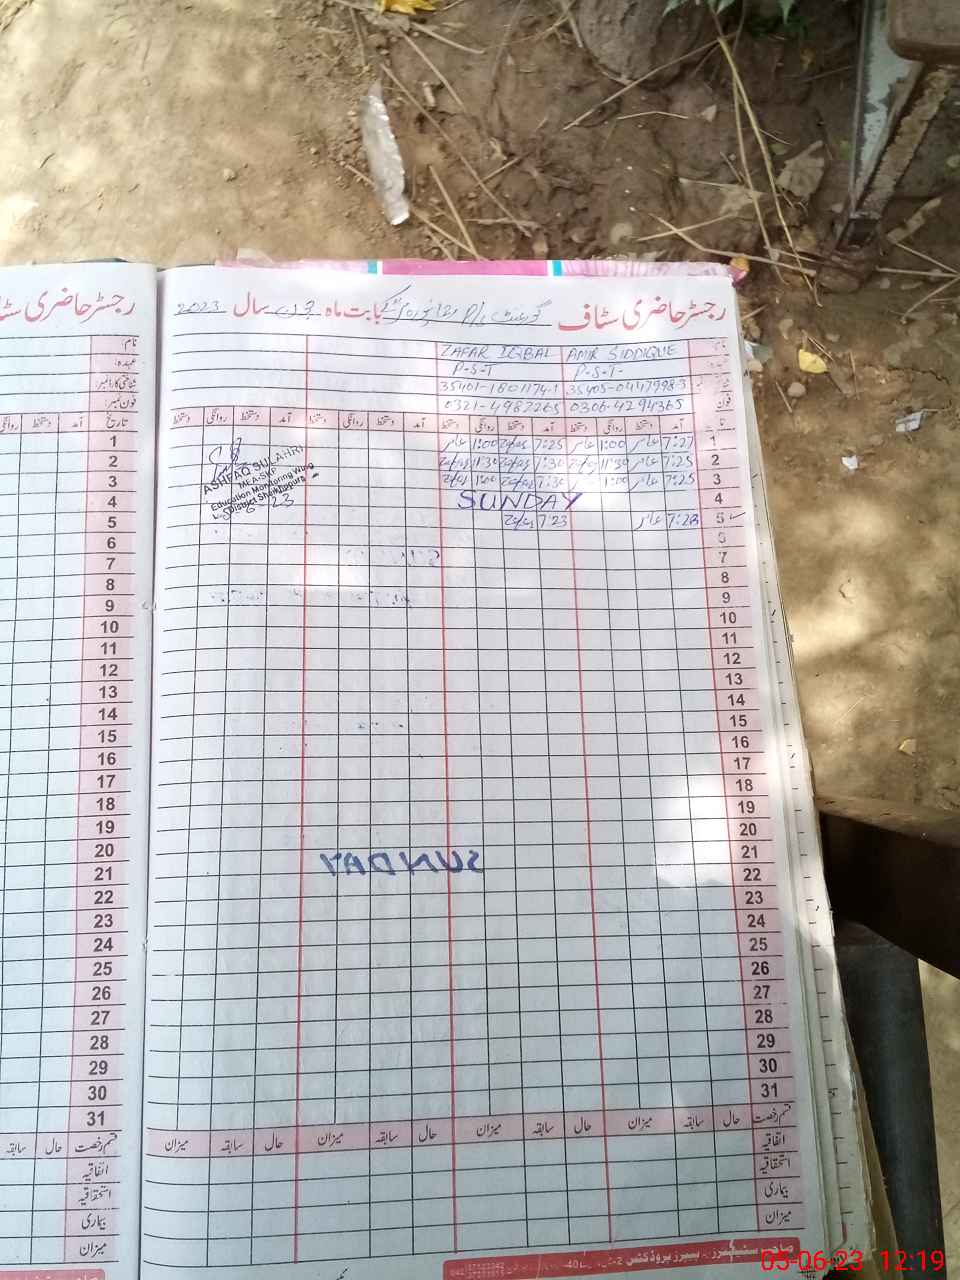 رجسٹر حاضری سٹاف گورنمنٹ P/S بابت ماہ جون سال 2023
نام: AMIR SIDDIQUE ZAFAR IQBAL
عہدہ: P-S-T- P-S-T
شناختی کارڈ نمبر: 35405-0447998-3 35401-1801174-1
فون نمبر: 0306-4294365 0321-4982265
تاریخ آمد دستخط روانگی دستخط آمد دستخط روانگی دستخط آمد دستخط روانگی دستخط آمد دستخط روانگی دستخط
1 7:27 عامر 1:00 عامر 7:25 Zafar 1:00 عامر
2 7:25 عامر 11:30 Zafar 7:30 Zafar 11:30 Zafar
3 7:25 عامر 1:00 عامر 7:30 Zafar 1:00 Zafar
4 SUNDAY
5 7:28 عامر 7:23 Zafar
ASHFAQ SULAHRI
MEA-SKP
Education Monitoring Wing
District Sheikhupura
5-6-23
6
7
8
9
10
11
12
13
14
15
16
17
18
19
20
21
SUNDAY
22
23
24
25
26
27
28
29
30
31
قسم رخصت حال سابقہ میزان حال سابقہ میزان حال سابقہ میزان حال سابقہ میزان
اتفاقیہ
استحقاقیہ
بیماری
میزان
رجسٹر حاضری سٹاف
نام:
عہدہ:
شناختی کارڈ نمبر:
فون نمبر:
تاریخ آمد دستخط روانگی
1
2
3
4
5
6
7
8
9
10
11
12
13
14
15
16
17
18
19
20
21
22
23
24
25
26
27
28
29
30
31
قسم رخصت حال سابقہ
اتفاقیہ
استحقاقیہ
بیماری
میزان
05-06-23 12:19